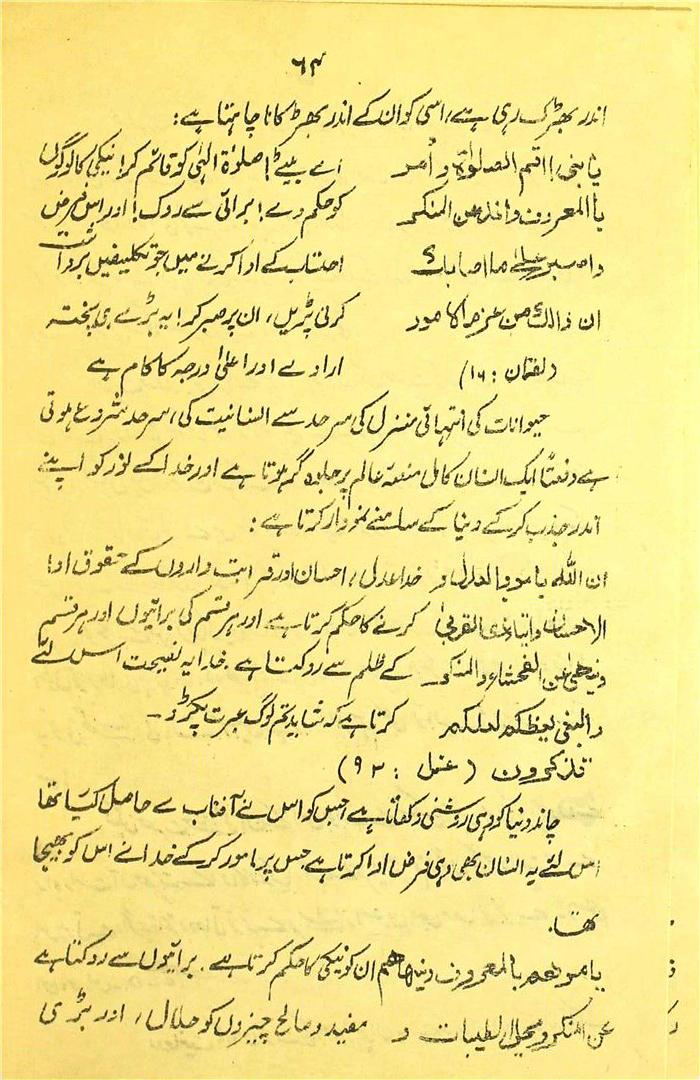 ۶۴
اندر بھڑک رہی ہے، اسی کو ان کے اندر بھڑکانا چاہتا ہے:
یا بنی! اقم الصلوٰۃ و أمر اے بیٹے! صلوٰۃ الٰہی کو قائم کر! نیکی کا لوگوں
باالمعروف وانہ عن المنکر کو حکم دے! برائی سے روک! اور اس فرض
واصبر علیٰ ما اصابک احتساب کے ادا کرنے میں جو تکلیفیں برداشت
ان ذالک من عزم الامور کرنی پڑیں، ان پر صبر کر! یہ بڑے ہی پختہ
(لقمان : ۱۶) ارادے اور اعلیٰ درجہ کا کام ہے
حیوانات کی انتہائی منزل کی سرحد سے انسانیت کی سرحد شروع ہوتی
ہے دفعتاً ایک انسان کامل منصۂ عالم پر جلوہ گر ہوتا ہے اور خدا کے نور کو اپنے
اندر جذب کر کے دنیا کے سامنے نمودار کرتا ہے:
ان اللہ یامر بالعدل و خدا عدل، احسان اور قرابت داروں کے حقوق ادا
الاحسان وایتاذی القربیٰ کرنے کا حکم کرتا ہے اور ہر قسم کی برائیوں اور ہر قسم
وینھیٰ عن الفحشاء والمنکر کے ظلم سے روکتا ہے. خدا یہ نصیحت اس لئے
والبغی یعظکم لعلکم کرتا ہے کہ شاید تم لوگ عبرت پکڑو۔
تذکرون ( : ۹۲)
چاند دنیا کو وہی روشنی دکھاتا ہے جس کو اس نے آفتاب سے حاصل کیا تھا
اس لئے یہ انسان بھی وہی فرض ادا کرتا ہے جس پر مامور کر کے خدا نے اس کو بھیجا
تھا.
یامرھم بالمعروف وینھاھم ان کو نیکی کا حکم کرتا ہے. برائیوں سے روکتا ہے
عن المنکر ویحل لطیبات و مفید و صالح چیزوں کو حلال، اور بڑی